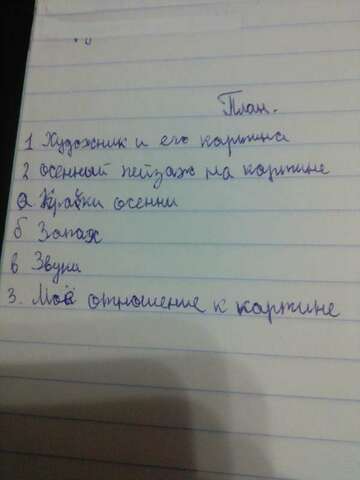 План.
1 Художник и его картина
2 осенный пейзаж на картине
а Краски осенни
б Запах
в Звуки
3. Моё отношение к картине